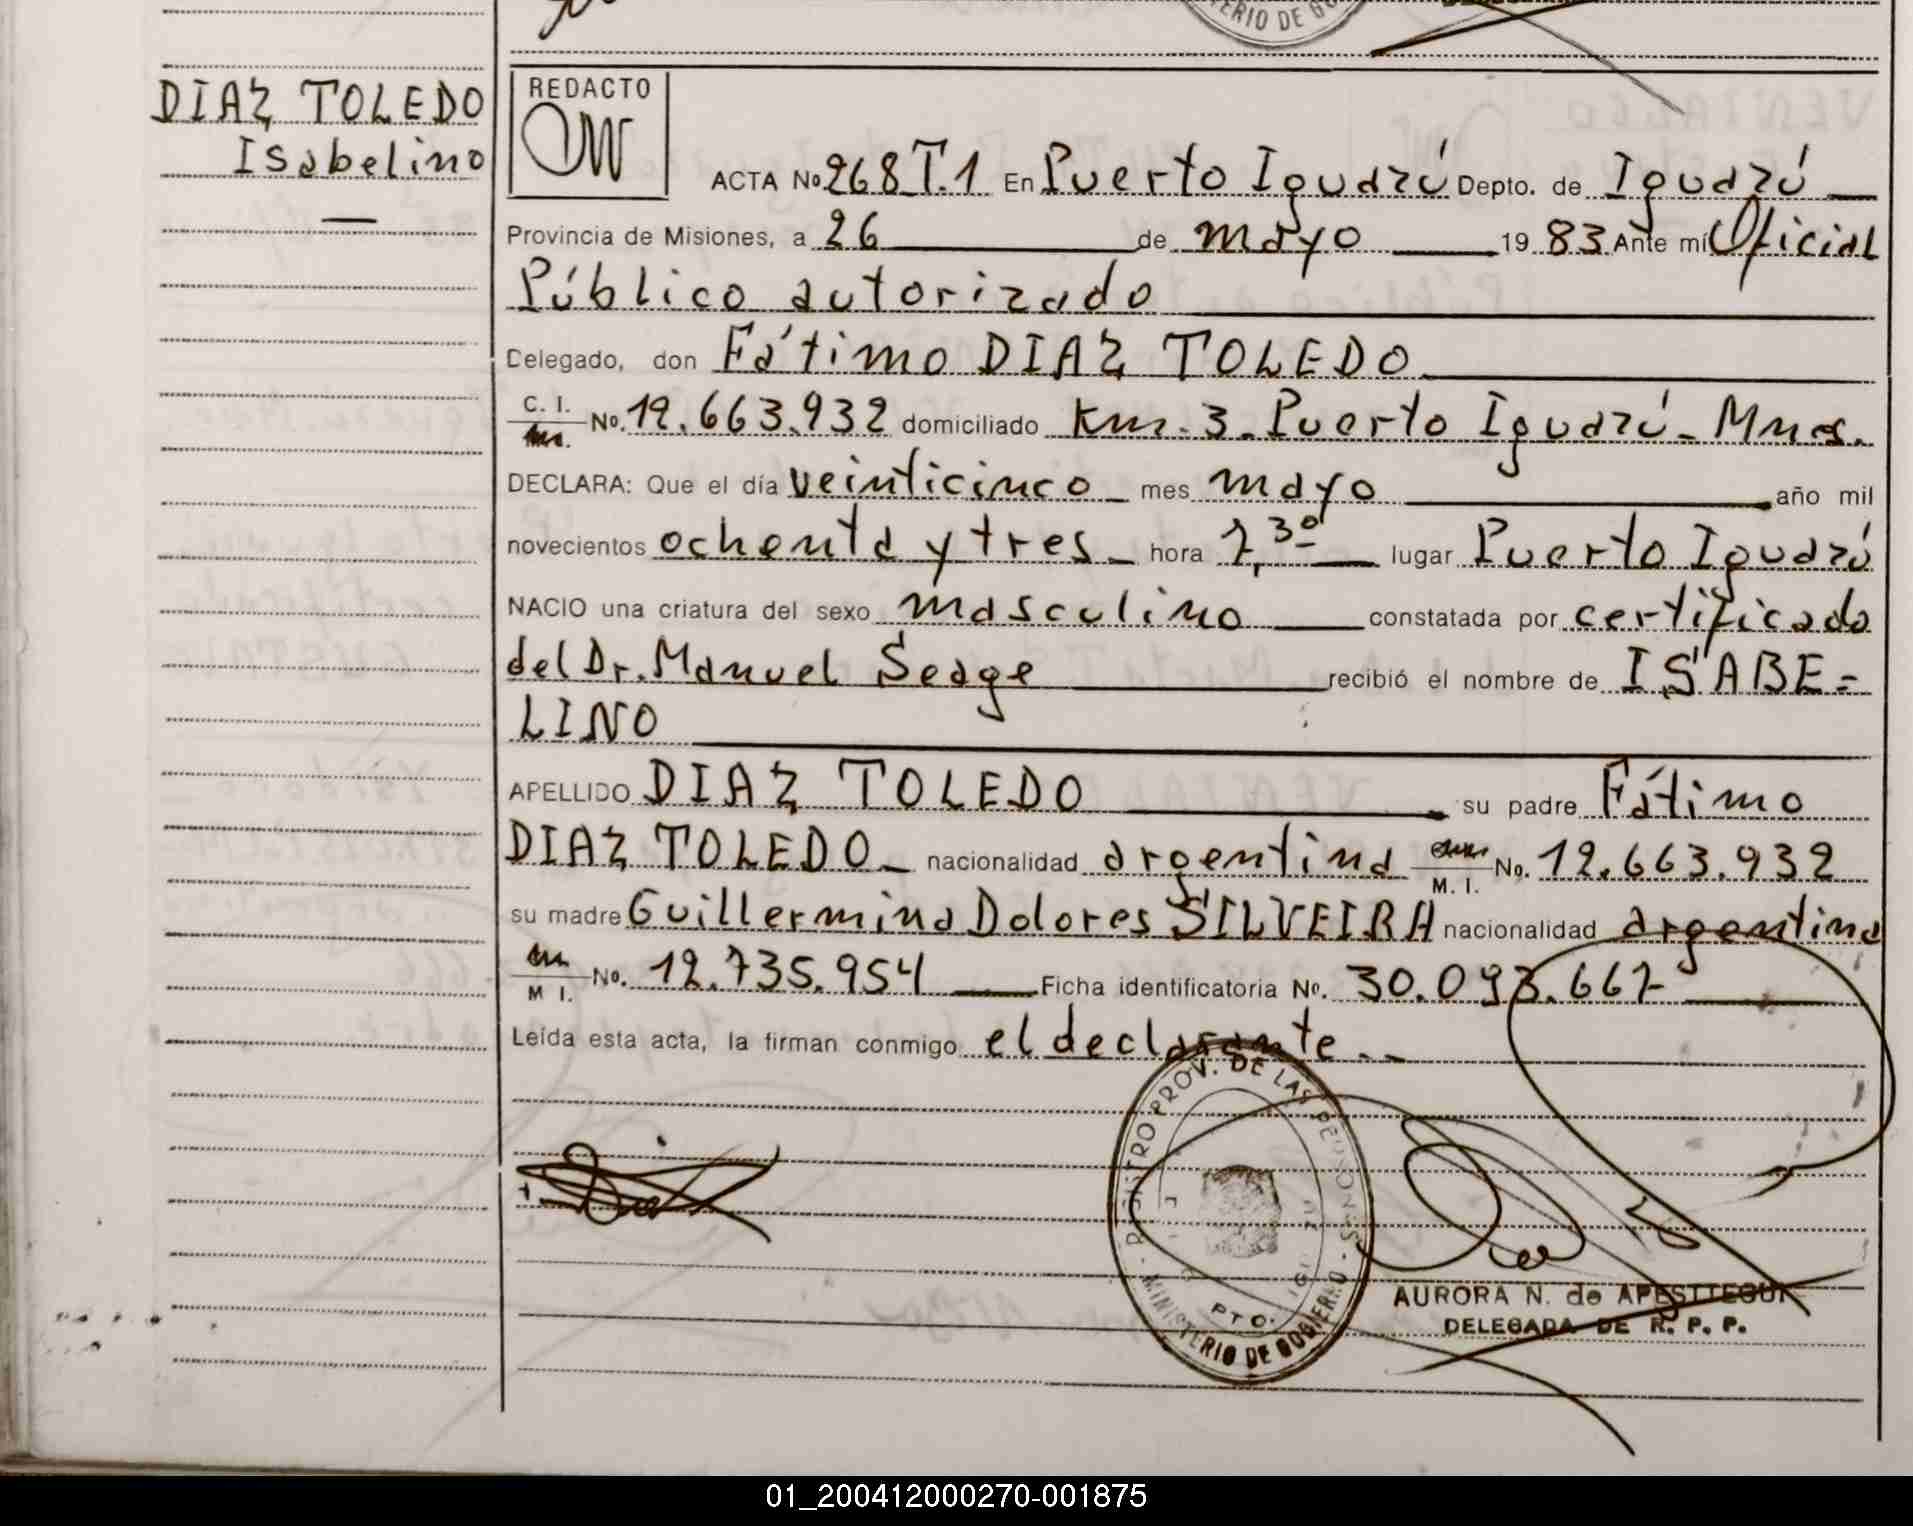 DIAZ TOLEDO
Isabelino
REDACTO
ACTA No 268 T.1 En Puerto Iguazú Depto. de Iguazú
Provincia de Misiones, a 26 de mayo 1983 Ante mí Oficial
Público autorizado
Delegado, don Fátimo DIAZ TOLEDO
C. I. No. 12.663.932 domiciliado Km. 3 - Puerto Iguazú - Mnes.
DECLARA: Que el día veinticinco mes mayo año mil
novecientos ochenta y tres hora 7,30 lugar Puerto Iguazú
NACIO una criatura del sexo masculino constatada por certificado
del Dr. Manuel Seage recibió el nombre de ISABE=
LINO
APELLIDO DIAZ TOLEDO su padre Fátimo
DIAZ TOLEDO nacionalidad argentina M. I. No. 12.663.932
su madre Guillermina Dolores SILVEIRA nacionalidad argentina
M I. No. 12.735.954 Ficha identificatoria No. 30.093.667
Leída esta acta, la firman conmigo el declarante..
REGISTRO PROV. DE LAS PERSONAS - MINISTERIO DE GOBIERNO
PTO.
AURORA N. de APESTTEGUI
DELEGADA DE R. P. P.
01_200412000270-001875